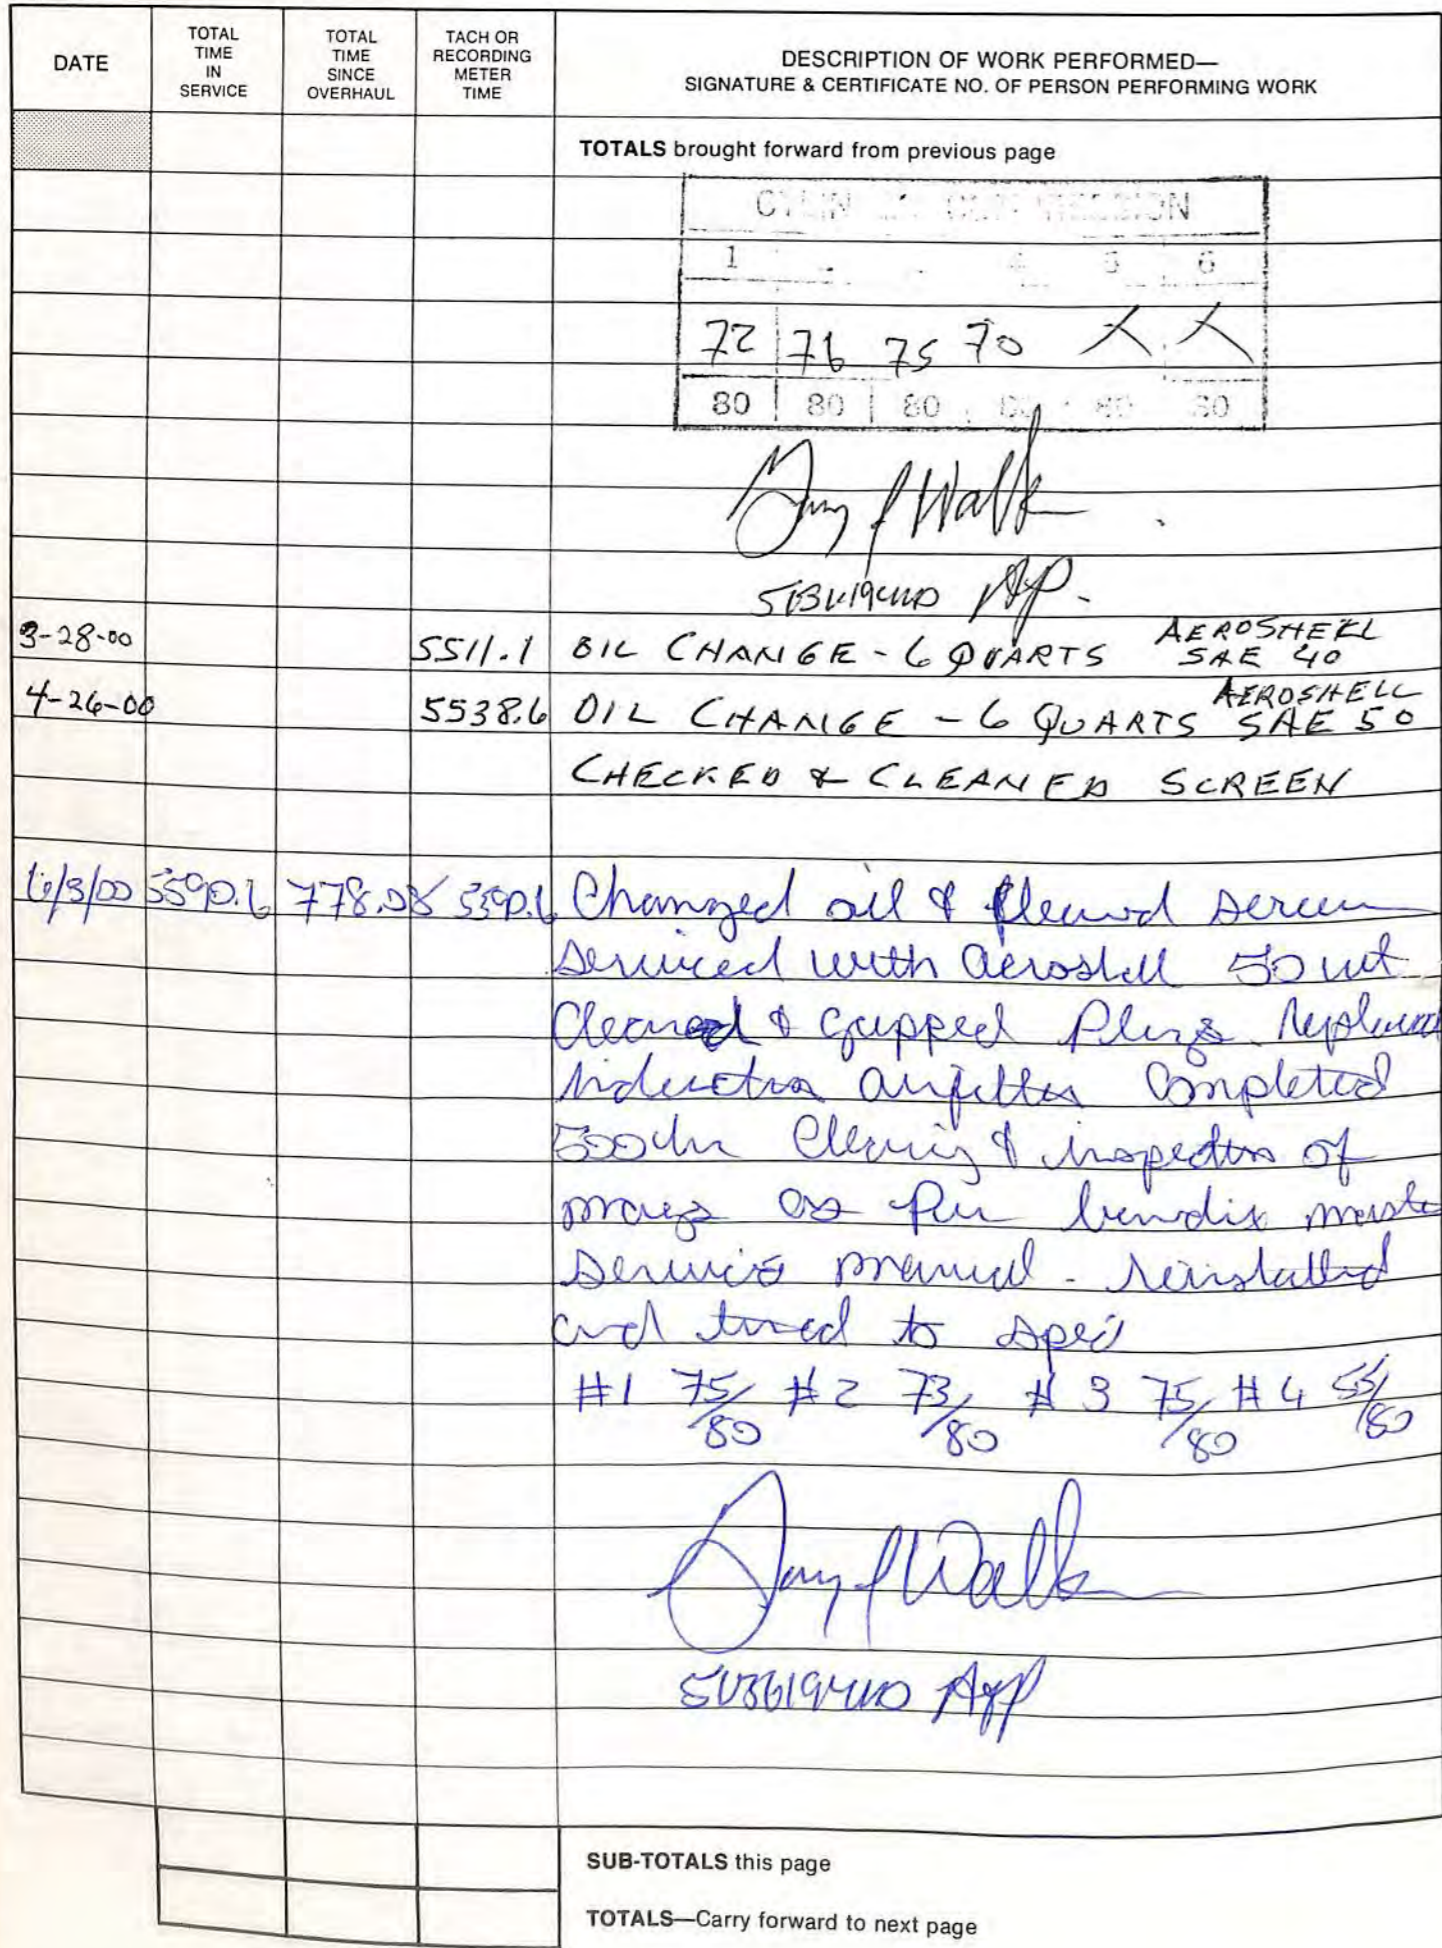 DATE
TOTAL TIME IN SERVICE
TOTAL TIME SINCE OVERHAUL
TACH OR RECORDING METER TIME
DESCRIPTION OF WORK PERFORMED—
SIGNATURE & CERTIFICATE NO. OF PERSON PERFORMING WORK
TOTALS brought forward from previous page
1 4 5 6
72 76 75 70 X X
80 80 80 80 80 80
AP.
3-28-00 5511.1 OIL CHANGE - 6 QUARTS AEROSHELL SAE 40
4-26-00 5538.6 OIL CHANGE - 6 QUARTS AEROSHELL SAE 50
CHECKED & CLEANED SCREEN
6/3/00 5590.6 778.08 5590.6 Changed oil & cleaned screen
serviced with aeroshell 50 wt
Cleaned & gapped Plugs. Replaced
induction airfilter Completed
500 hr Cleaning & inspection of
mags as per bendix
service manual - reinstalled
and timed to spec
#1 75/80 #2 73/80 #3 75/80 #4 55/80
A&P
SUB-TOTALS this page
TOTALS—Carry forward to next page